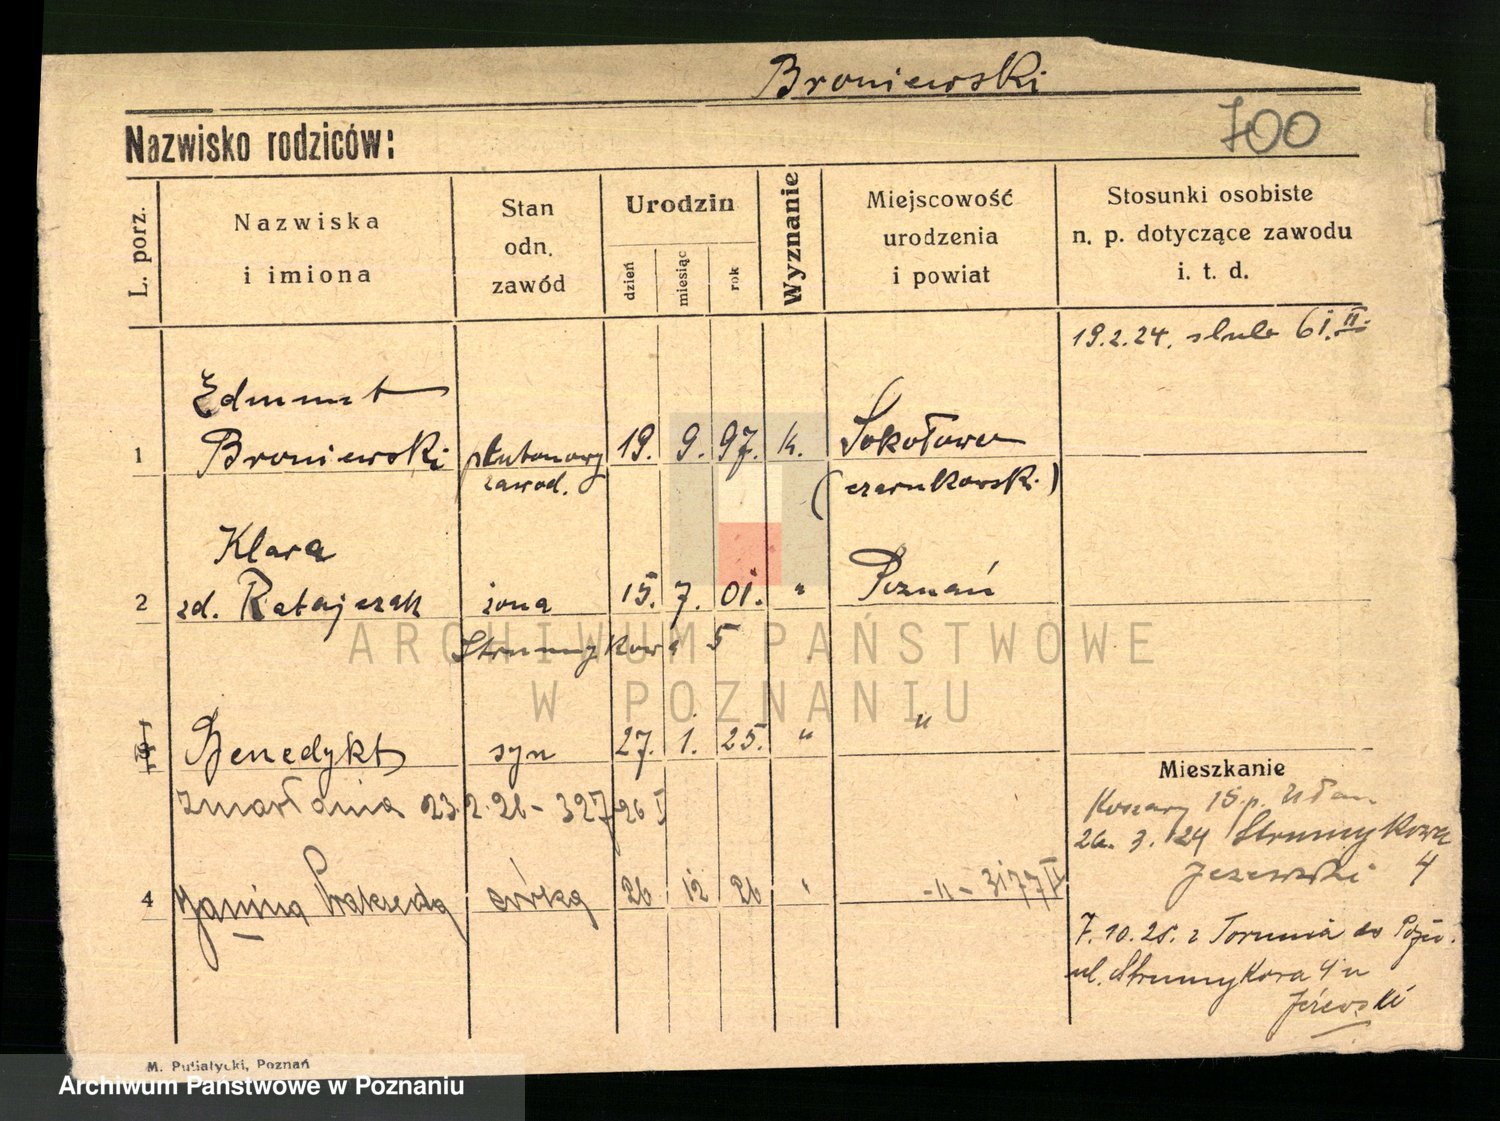 Broniewski
700
Nazwisko rodziców:
L. porz.
Nazwiska
i imiona
Stan
odn.
zawód
Urodzin
dzień
miesiąc
rok
Wyznanie
Miejscowość
urodzenia
i powiat
Stosunki osobiste
n. p. dotyczące zawodu
i. t. d.
19.2.24. slub 61.II.
Edmunt
1 Broniewski plutonowy 19. 9. 97. k. Sokołowo
zawod. (czarnkowski)
Klara
2 zd. Ratajczak żona 15. 7. 01. " Poznań
Strumykowa 5
Benedykt syn 27. 1. 25. " "
zmarł dnia 23.2.26 - 327/26 I
4 Janina córka 26 12 26 " -"- 3177 II
Mieszkanie
Koszary 15 p. Ułan
26. 3. 24 Strumykowa
Jezewski 4
7. 10. 25. z Torunia do Pozn.
ul. Strumykowa 4 u
Jeżewski
M. Putiatycki, Poznań
ARCHIWUM PAŃSTWOWE
W POZNANIU
Archiwum Państwowe w Poznaniu